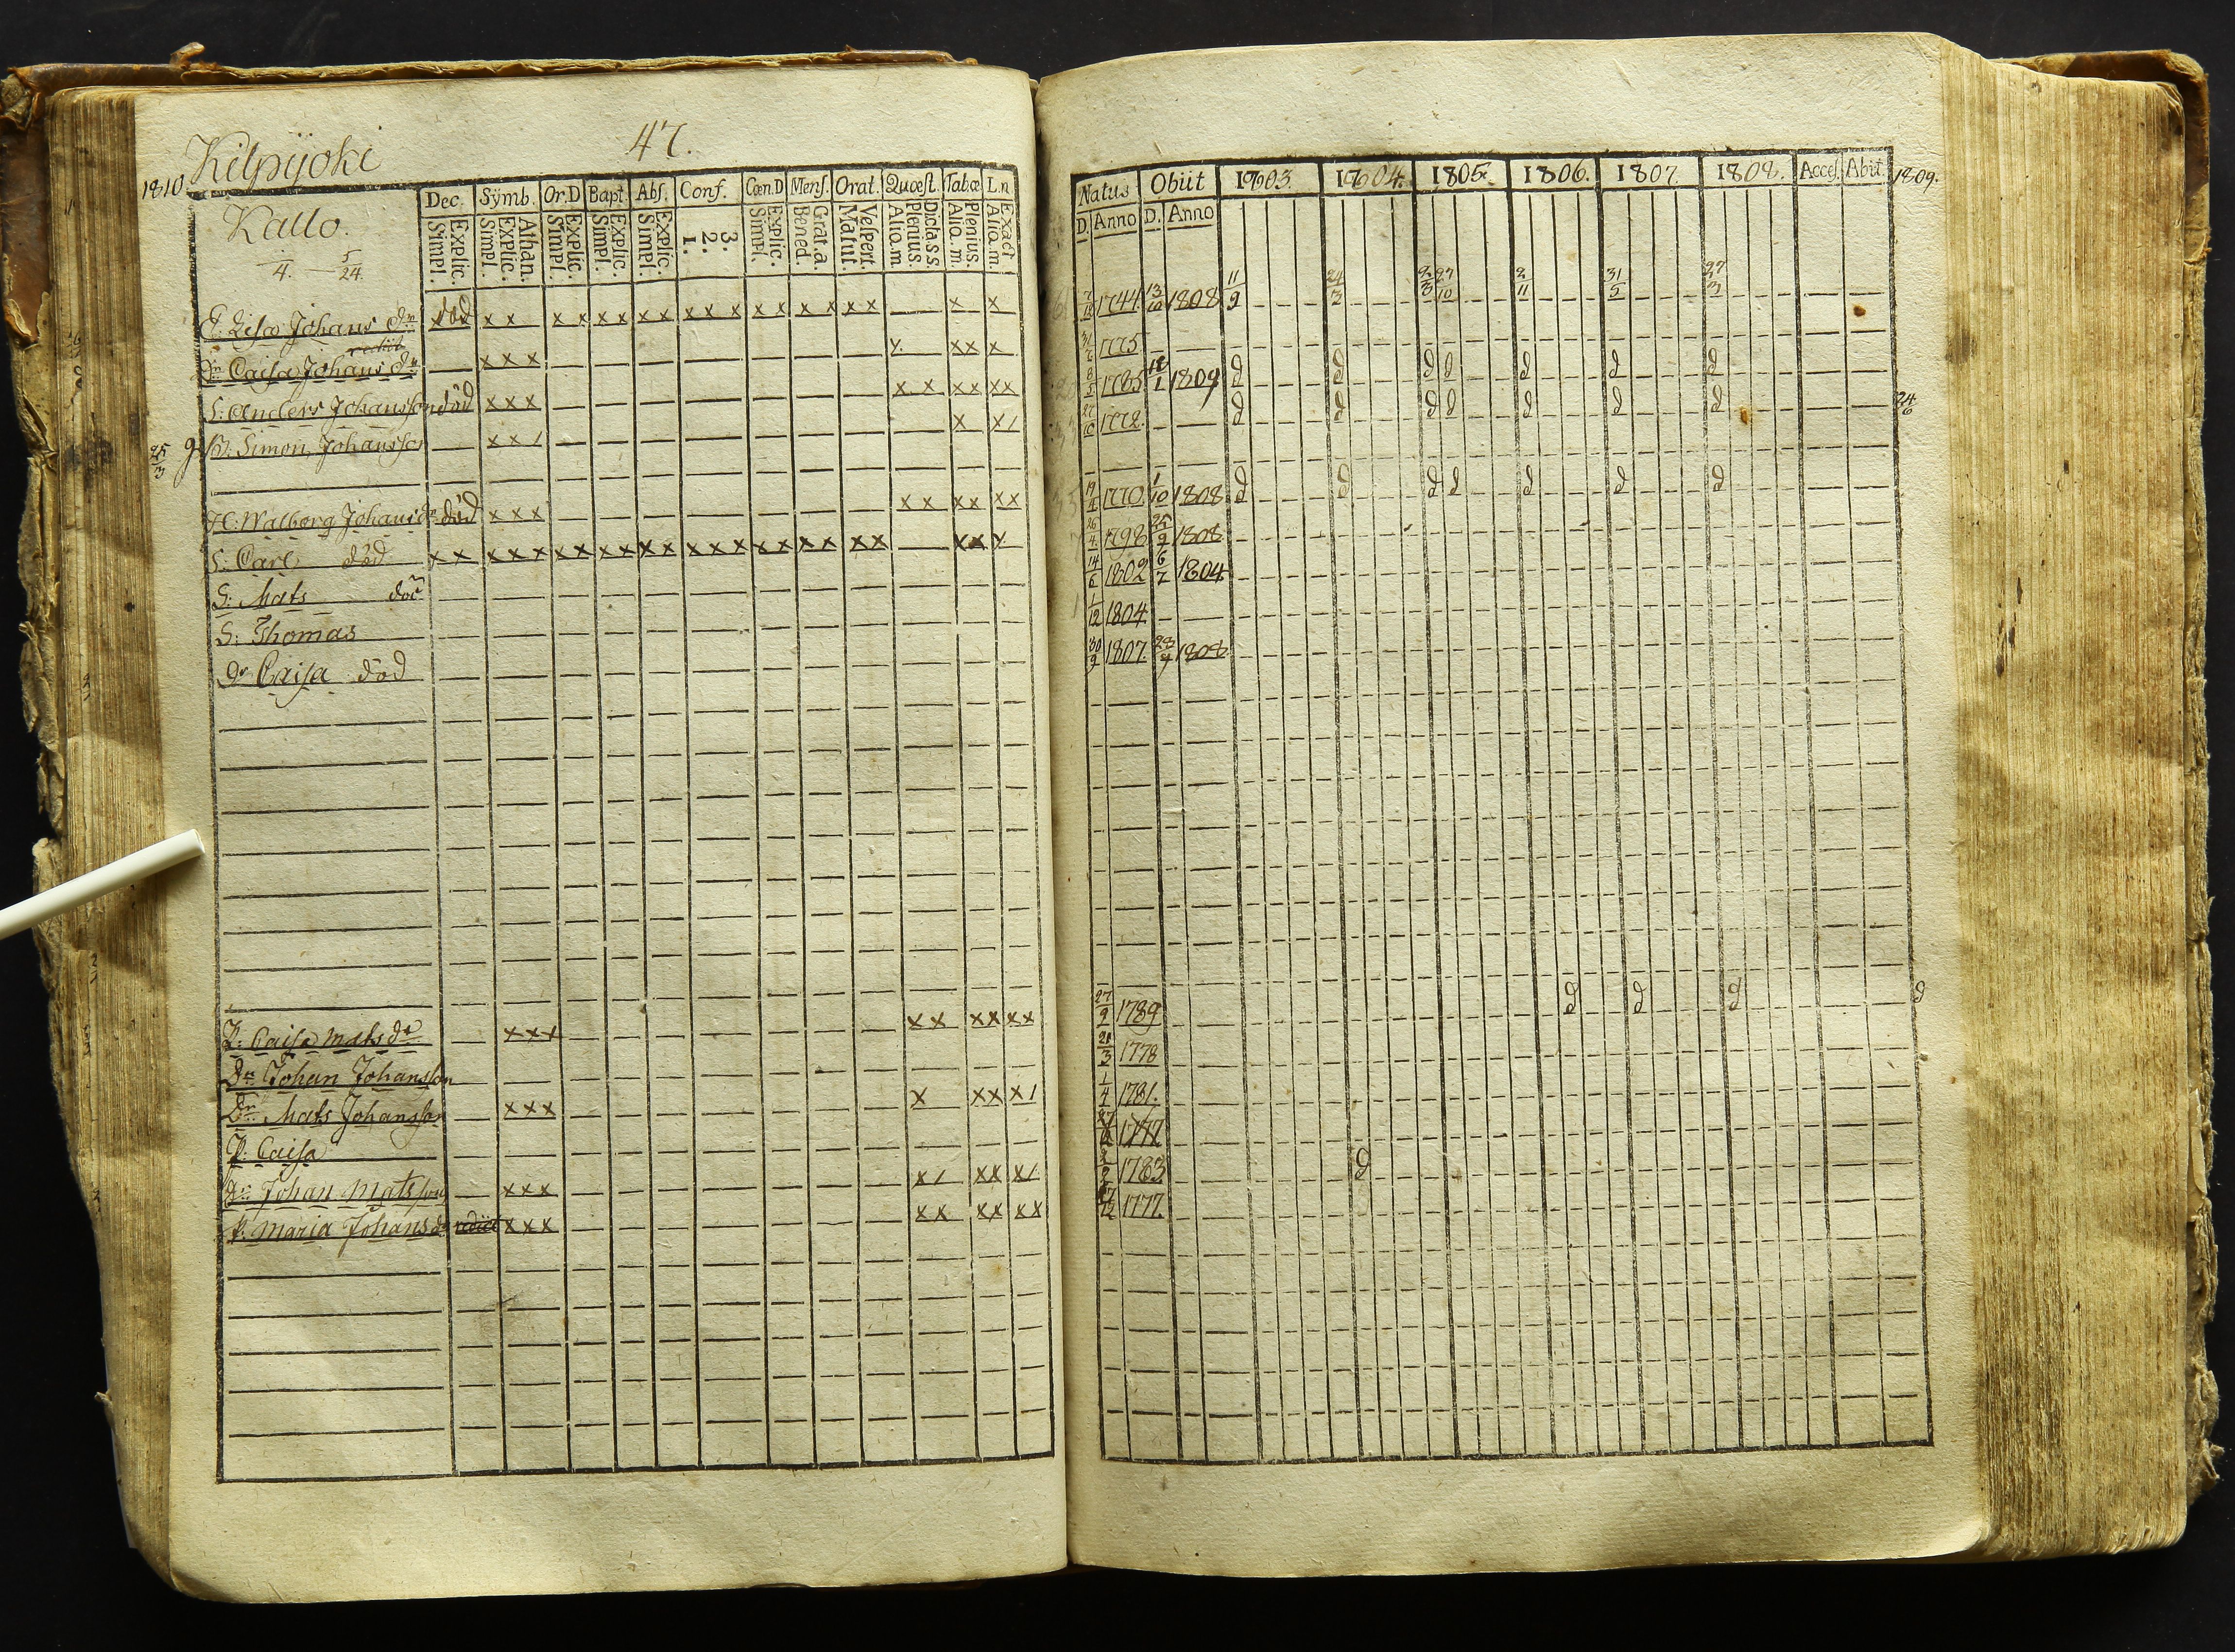 Kilpijoki
47.
1810
Kallo.
4. — 5/24.
Dec. Sÿmb. Or.D Bapt. Abſ. Conf. Cœn.D Menſ. Orat. Quæſt. Tabœ L.n
Explic. Simpl. Athan. Explic. Simpl. Explic. Simpl. Explic. Simpl. Explic. Simpl. 3. 2. 1. Explic. Simpl. Grat.a. Bened. Veſpert. Matut. Dicta.s.s. Plenius. Aliq.m. Plenius. Aliq.m. Exact Aliq.m.
E. Lisa Johans dr död x x x x x x x x x x x x x x x x x x x x x
redit
Dr Caisa Johans dr x x x x x x x
S: Anders Johansson död x x x x x x x x x
25/3 B: Simon Johansson x x / x x /
H: Walborg Johans dr död x x x x x x x x x
S: Carl död x x x x x x x x x x x x x x x x x x x x x x x x
S: Mats död
S: Thomas
Dr Caisa död
P: Caisa Mats dr x x x x x x x x x
Dr Johan Johansson
Dr Mats Johansson x x x x x x x /
P: Caisa
Dr Johan Matsson x x x x / x x x /
P. Maria Johans dr x x x x x x x x x
Natus Obiit 1803. 1804. 1805. 1806. 1807. 1808. Acceſ. Abiit. 1809.
D. Anno D. Anno
1744 13/10 1808 11/9 24/3 2/3 27/10 2/11 31/5 27/3
1775
8/5 1785 18/1 1809 d d d d d d d
27/10 1772. d d d d d d d 24/6
19/4 1770 1/10 1808 d d d d d d d
26/4 1798 25/9 1808
14/6 1802 6/7 1804
1/12 1804
30/9 1807. 23/4 1808
27/2 1789 d d d d
21/3 1778
1/4 1781.
1777
1783 d
1777.